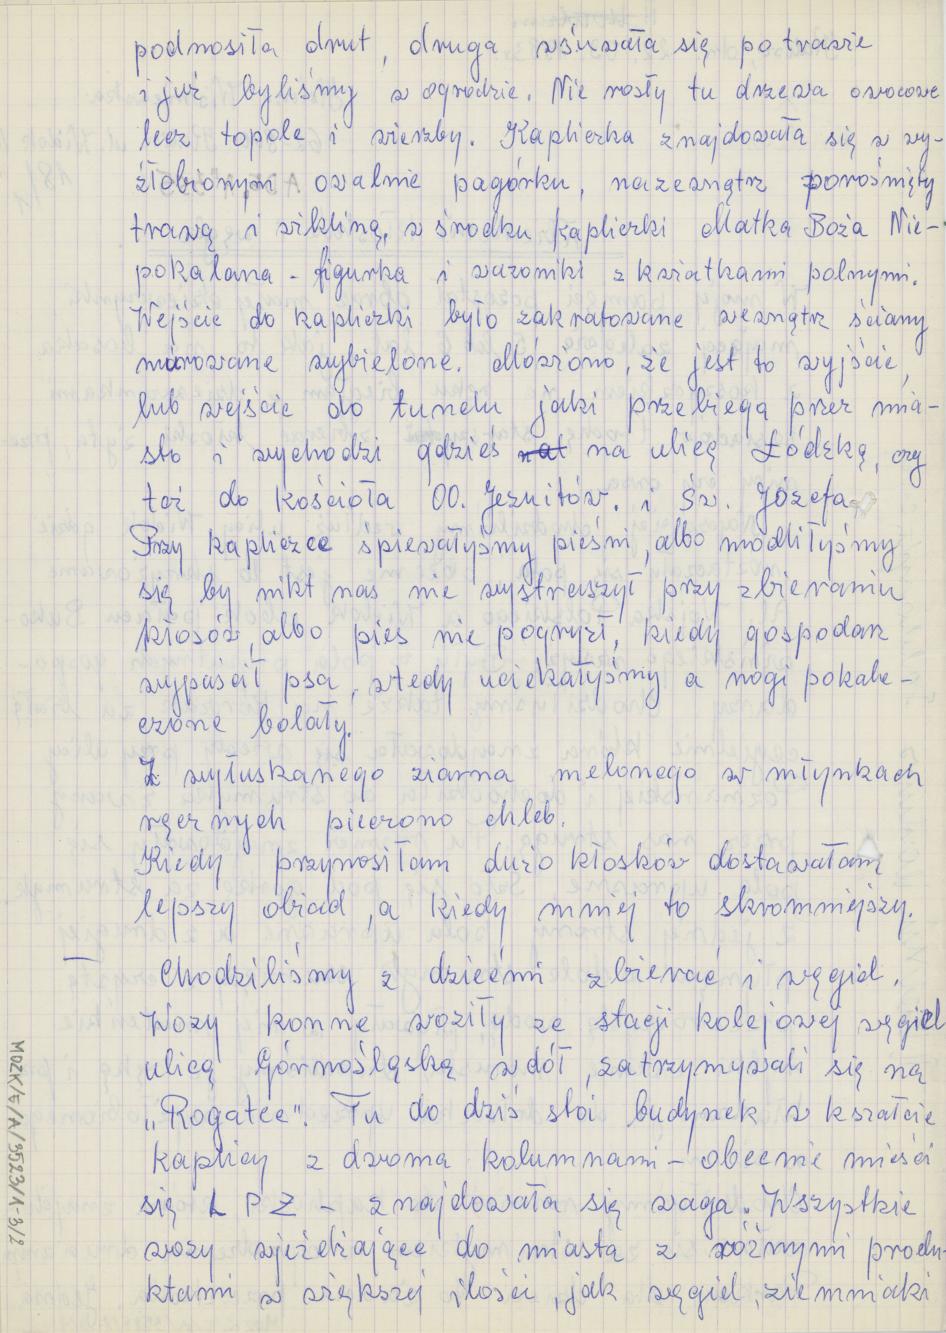 podnosiła drut, druga wsuwała się po trawie
i już byliśmy w ogrodzie. Nie rosły tu drzewa owocowe
lecz topole i wierzby. Kapliczka znajdowała się w wy-
żłobionym owalnie pagórku, nazewnątrz porośnięty
trawą i wikliną, w środku kapliczki Matka Boża Nie-
pokalana - figurka i wazoniki z kwiatkami polnymi.
Wejście do kapliczki było zakratowane wewnątrz ściany
murowane wybielone. Mówiono, że jest to wyjście,
lub wejście do tunelu jaki przebiega przez mia-
sto i wychodzi gdzieś na ulicę Łódzką, czy
też do kościoła OO. Jezuitów. i Św. Józefa.
Przy kapliczce śpiewałyśmy pieśni, albo modliłyśmy
się by nikt nas nie wystraszył przy zbieraniu
kłosów, albo pies nie pogryzł, kiedy gospodarz
wypuścił psa, wtedy uciekałyśmy a nogi pokale-
czone bolały.
Z wyłuskanego ziarna melonego w młynkach
ręcznych pieczono chleb.
Kiedy przynosiłam dużo kłosków dostawałam
lepszy obiad, a kiedy mniej to skromniejszy.
— Chodziliśmy z dziećmi zbierać i węgiel.
Wozy konne woziły ze stacji kolejowej węgiel
ulicą Górnośląską w dół, zatrzymywali się na
„Rogatce". Tu do dziś stoi budynek w kształcie
kaplicy z dwoma kolumnami - obecnie mieści
się L P Z - znajdowała się waga. Wszystkie
wozy wjeżdżające do miasta z różnymi produ-
ktami w większej ilości, jak węgiel, ziemniaki
MOZK/E/A/3523/A-3/2